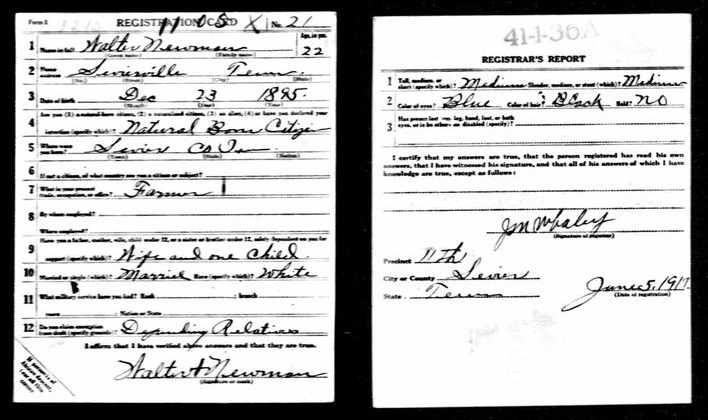 Form 1
REGISTRATION CARD No. 21
1 Name in full Walter Newman Age, in yrs. 22
(Given name) (Family name)
2 Home address Sevierville Tenn.
(No.) (Street) (City) (State)
3 Date of birth Dec 23 1895
(Month) (Day) (Year)
4 Are you (1) a natural-born citizen, (2) a naturalized citizen, (3) an alien, (4) or have you declared your
intention (specify which)? Natural Born Citizen
5 Where were you born? Sevier Co
(Town) (State) (Nation)
6 If not a citizen, of what country are you a citizen or subject?
7 What is your present trade, occupation, or office? Farmer
8 By whom employed?
Where employed?
9 Have you a father, mother, wife, child under 12, or a sister or brother under 12, solely dependent on you for
support (specify which)? Wife and one Child
10 Married or single (which)? Married Race (specify which)? White
11 What military service have you had? Rank ; branch
years ; Nation or State
12 Do you claim exemption from draft (specify grounds)? Depending Relatives
I affirm that I have verified above answers and that they are true.
Walter Newman
(Signature or mark)
41-1-36A
REGISTRAR'S REPORT
1 Tall, medium, or short (specify which)? Medium Slender, medium, or stout (which)? Medium
2 Color of eyes? Blue Color of hair? Black Bald? No
3 Has person lost arm, leg, hand, foot, or both
eyes, or is he otherwise disabled (specify)?
I certify that my answers are true, that the person registered has read his own
answers, that I have witnessed his signature, and that all of his answers of which I have
knowledge are true, except as follows:
J M Whaley
(Signature of registrar)
Precinct 11th
City or County Sevier
State Tenn
June 5, 1917
(Date of registration)